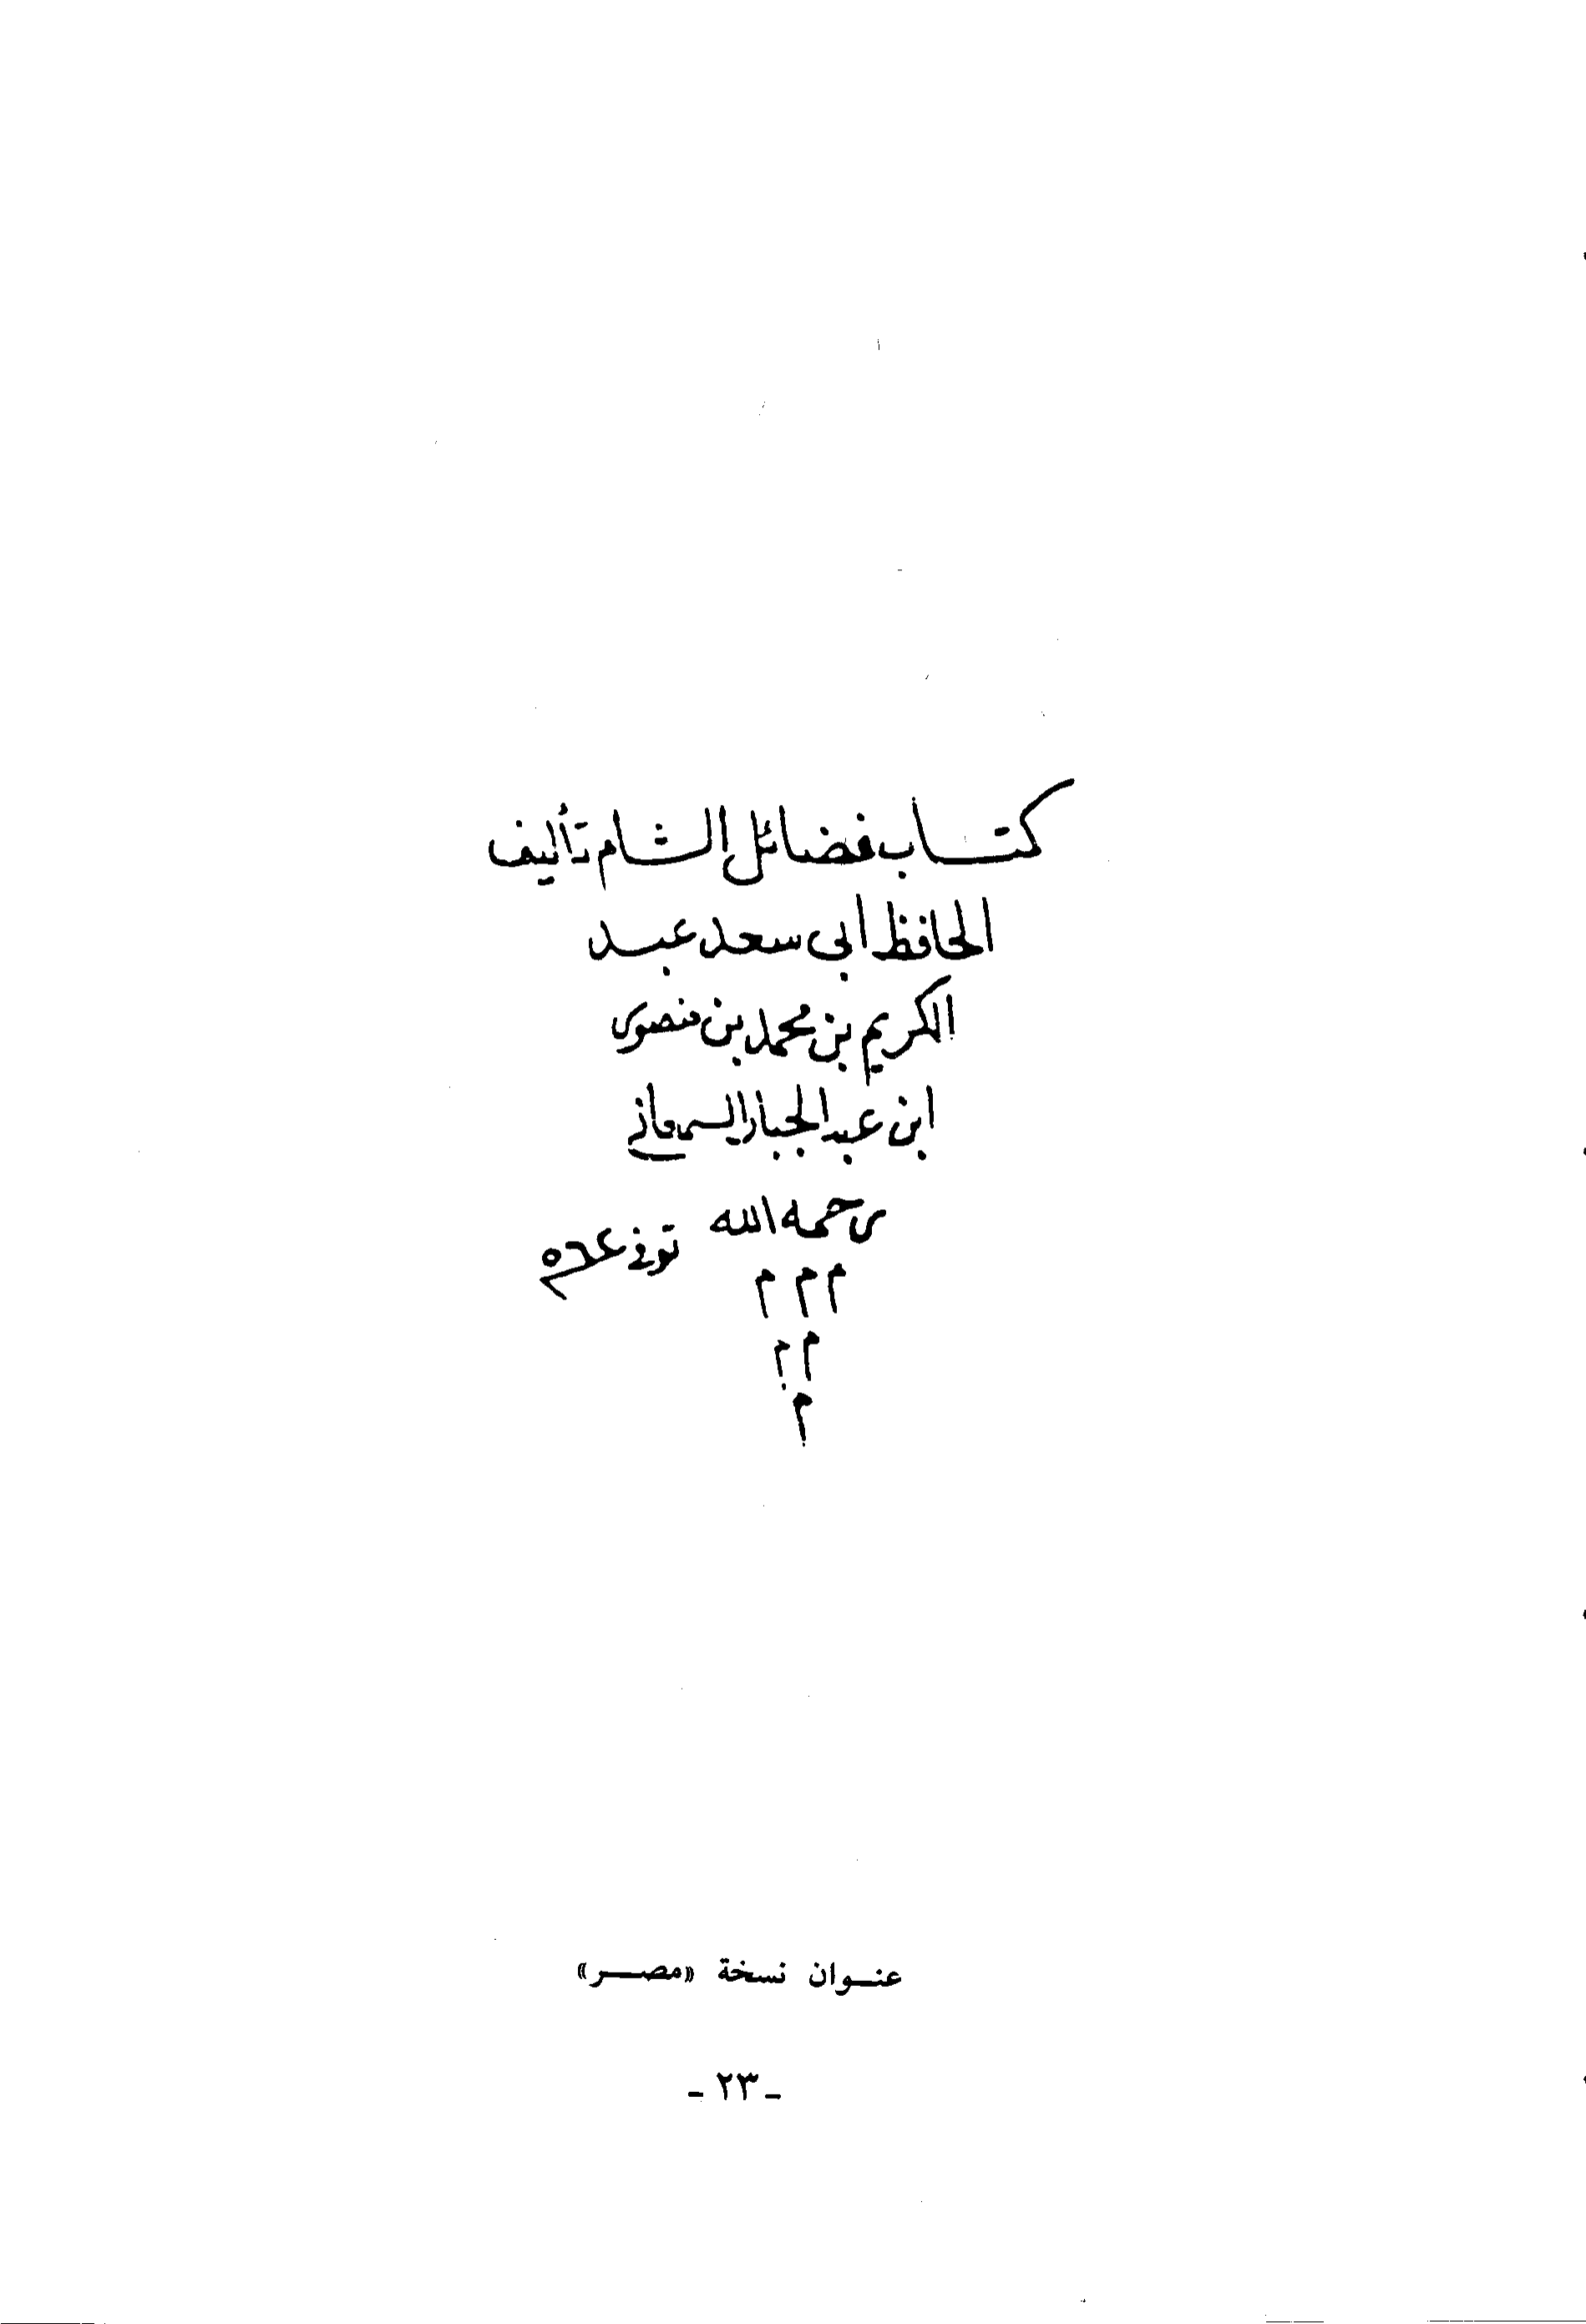 كتاب فضائل الشام تأليف
الحافظ ابى سعد عبد
الكريم بن محمد بن منصور
ابن عبد الجبار السمعاني
رحمه الله توفي
م م م
م م
م
عنوان نسخة «مصر»
- ٢٣ -